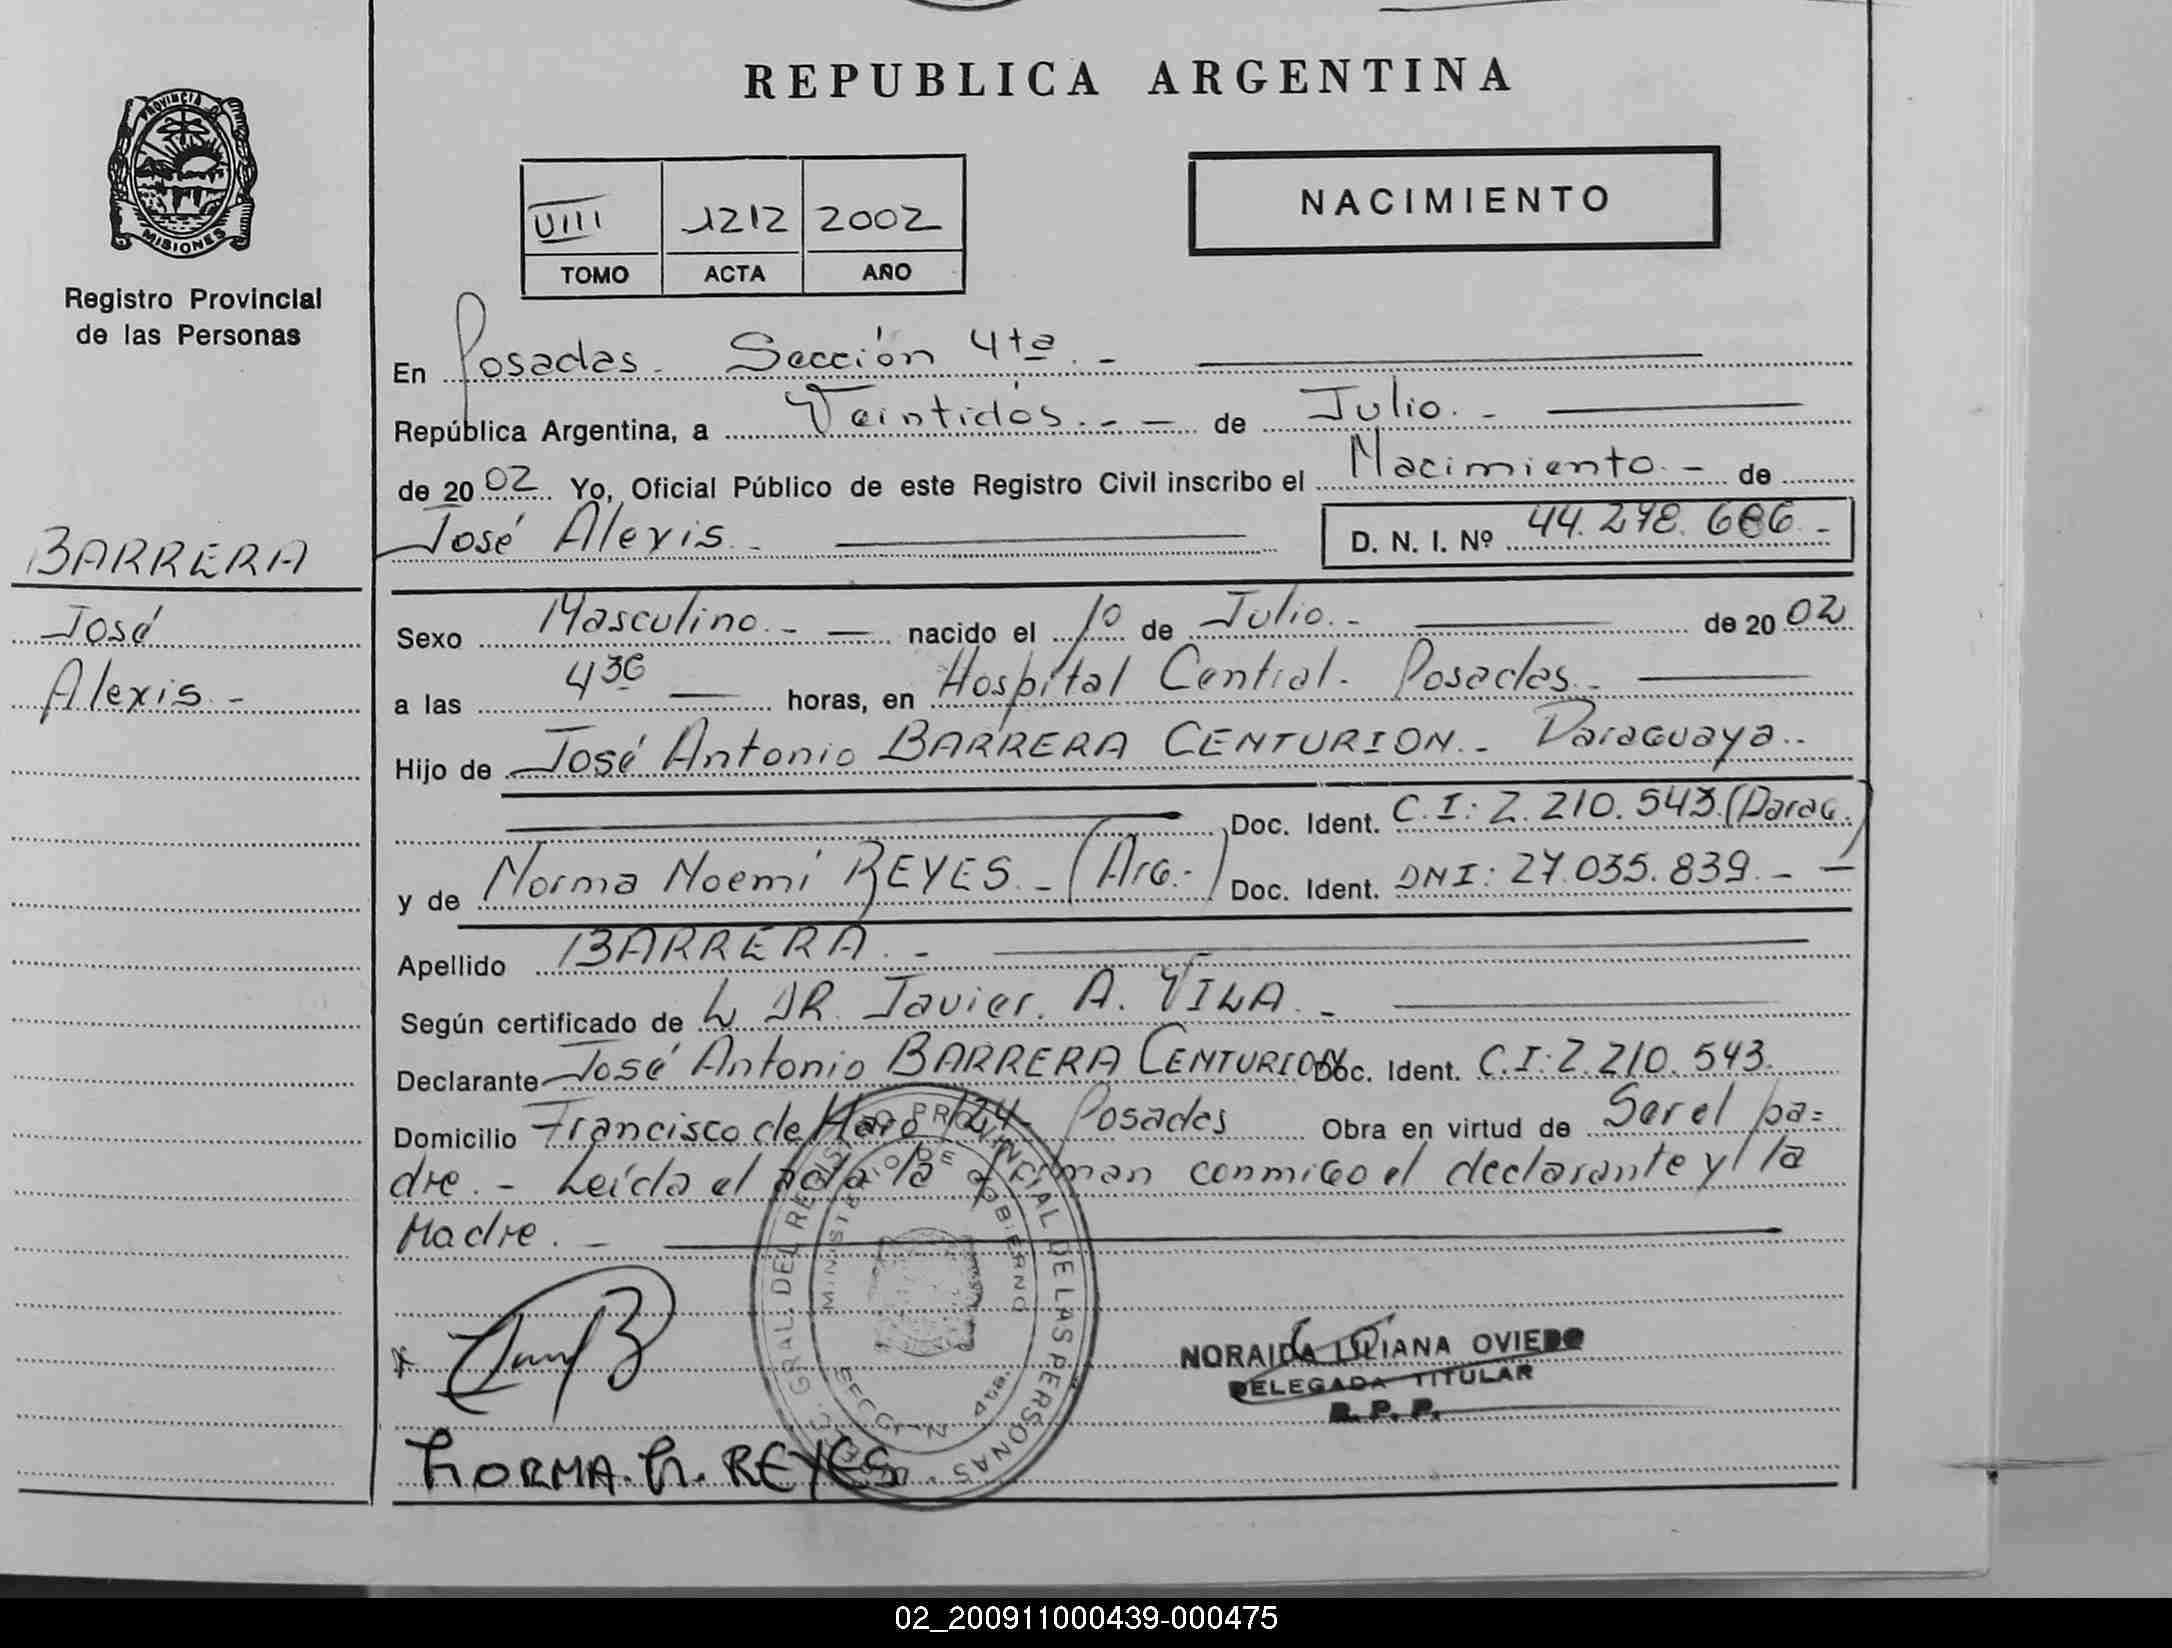 REPUBLICA ARGENTINA
PROVINCIA DE
MISIONES
Registro Provincial
de las Personas
VIII 1212 2002
TOMO ACTA AÑO
NACIMIENTO
En Posadas. Sección 4ta. -
República Argentina, a Veintidós. - - de Julio. -
de 20 02 Yo, Oficial Público de este Registro Civil inscribo el Nacimiento. - de
José Alexis. -
D. N. I. Nº 44.278.686 -
BARRERA
José
Alexis. -
Sexo Masculino. - - nacido el 1º de Julio. - de 20 02
a las 4 30 horas, en Hospital Central. Posadas. -
Hijo de José Antonio BARRERA CENTURION. - Paraguaya. -
Doc. Ident. C.I: 2.210.543. (Parag.)
y de Norma Noemí REYES. - (Arg. -) Doc. Ident. DNI: 27.035.839. - -
Apellido BARRERA. -
Según certificado de DR. Javier. A. VILA. -
Declarante José Antonio BARRERA CENTURION Doc. Ident. C.I: 2.210.543.
Domicilio Francisco de Haro 124 - Posadas Obra en virtud de Ser el pa=
dre. - Leída el acta la firman conmigo el declarante y la
Madre. -
GRAL. DEL REGISTRO PROVINCIAL DE LAS PERSONAS
MINISTERIO DE GOBIERNO
NORAIDA LILIANA OVIEDO
DELEGADA TITULAR
R. P. P.
NORMA. N. REYES
02_200911000439-000475